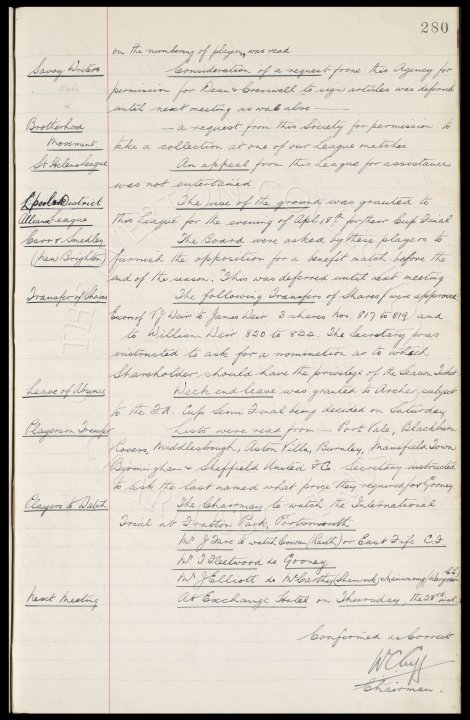 280
on the numbering of players, was read
Savoy Writers Consideration of a request from this Agency for
permission for Dean & Cresswell to sign articles was deferred
until next meeting as was also —
Brotherhood — a request from this Society for permission to
Movement. take a collection at one of our League matches
St Helens League An appeal from this League for assistance
was not entertained.
L'pool & District The use of the ground was granted to
Alliance League this League for the evening of Apl. 18th for their Cup Final
Carr & Smedley The Board were asked by these players to
(New Brighton) furnish the opposition for a benefit match before the
end of the season. This was deferred until next meeting
Transfer of Shares The following Transfers of Shares were approved
Exors of T J Weir to James Weir 3 shares Nos. 817 to 819 and
to William Weir 820 to 822. The Secretary was
instructed to ask for a nomination as to which
Shareholder should have the privilege of the Season Ticket.
Leave of Absence Week end leave was granted to Archer subject
to the F.A. Cup Semi Final being decided on Saturday
Players on Transfer Lists were read from:— Port Vale, Blackburn
Rovers, Middlesbrough, Aston Villa, Burnley, Mansfield Town
Birmingham & Sheffield United F.C. Secretary instructed
to ask the last named what price they required for Gooney
Players to Watch The Chairman to watch the International
Trial at Fratton Park, Portsmouth
Mr J Fare to watch Cowan (Raith) or East Fife C.F
Mr T Fleetwood do Gooney
Mr J Elliott do McCarthy (Shamrock) &
Next Meeting At Exchange Hotel on Thursday, the 23rd inst.
Confirmed as Correct
W C Cuff
Chairman.